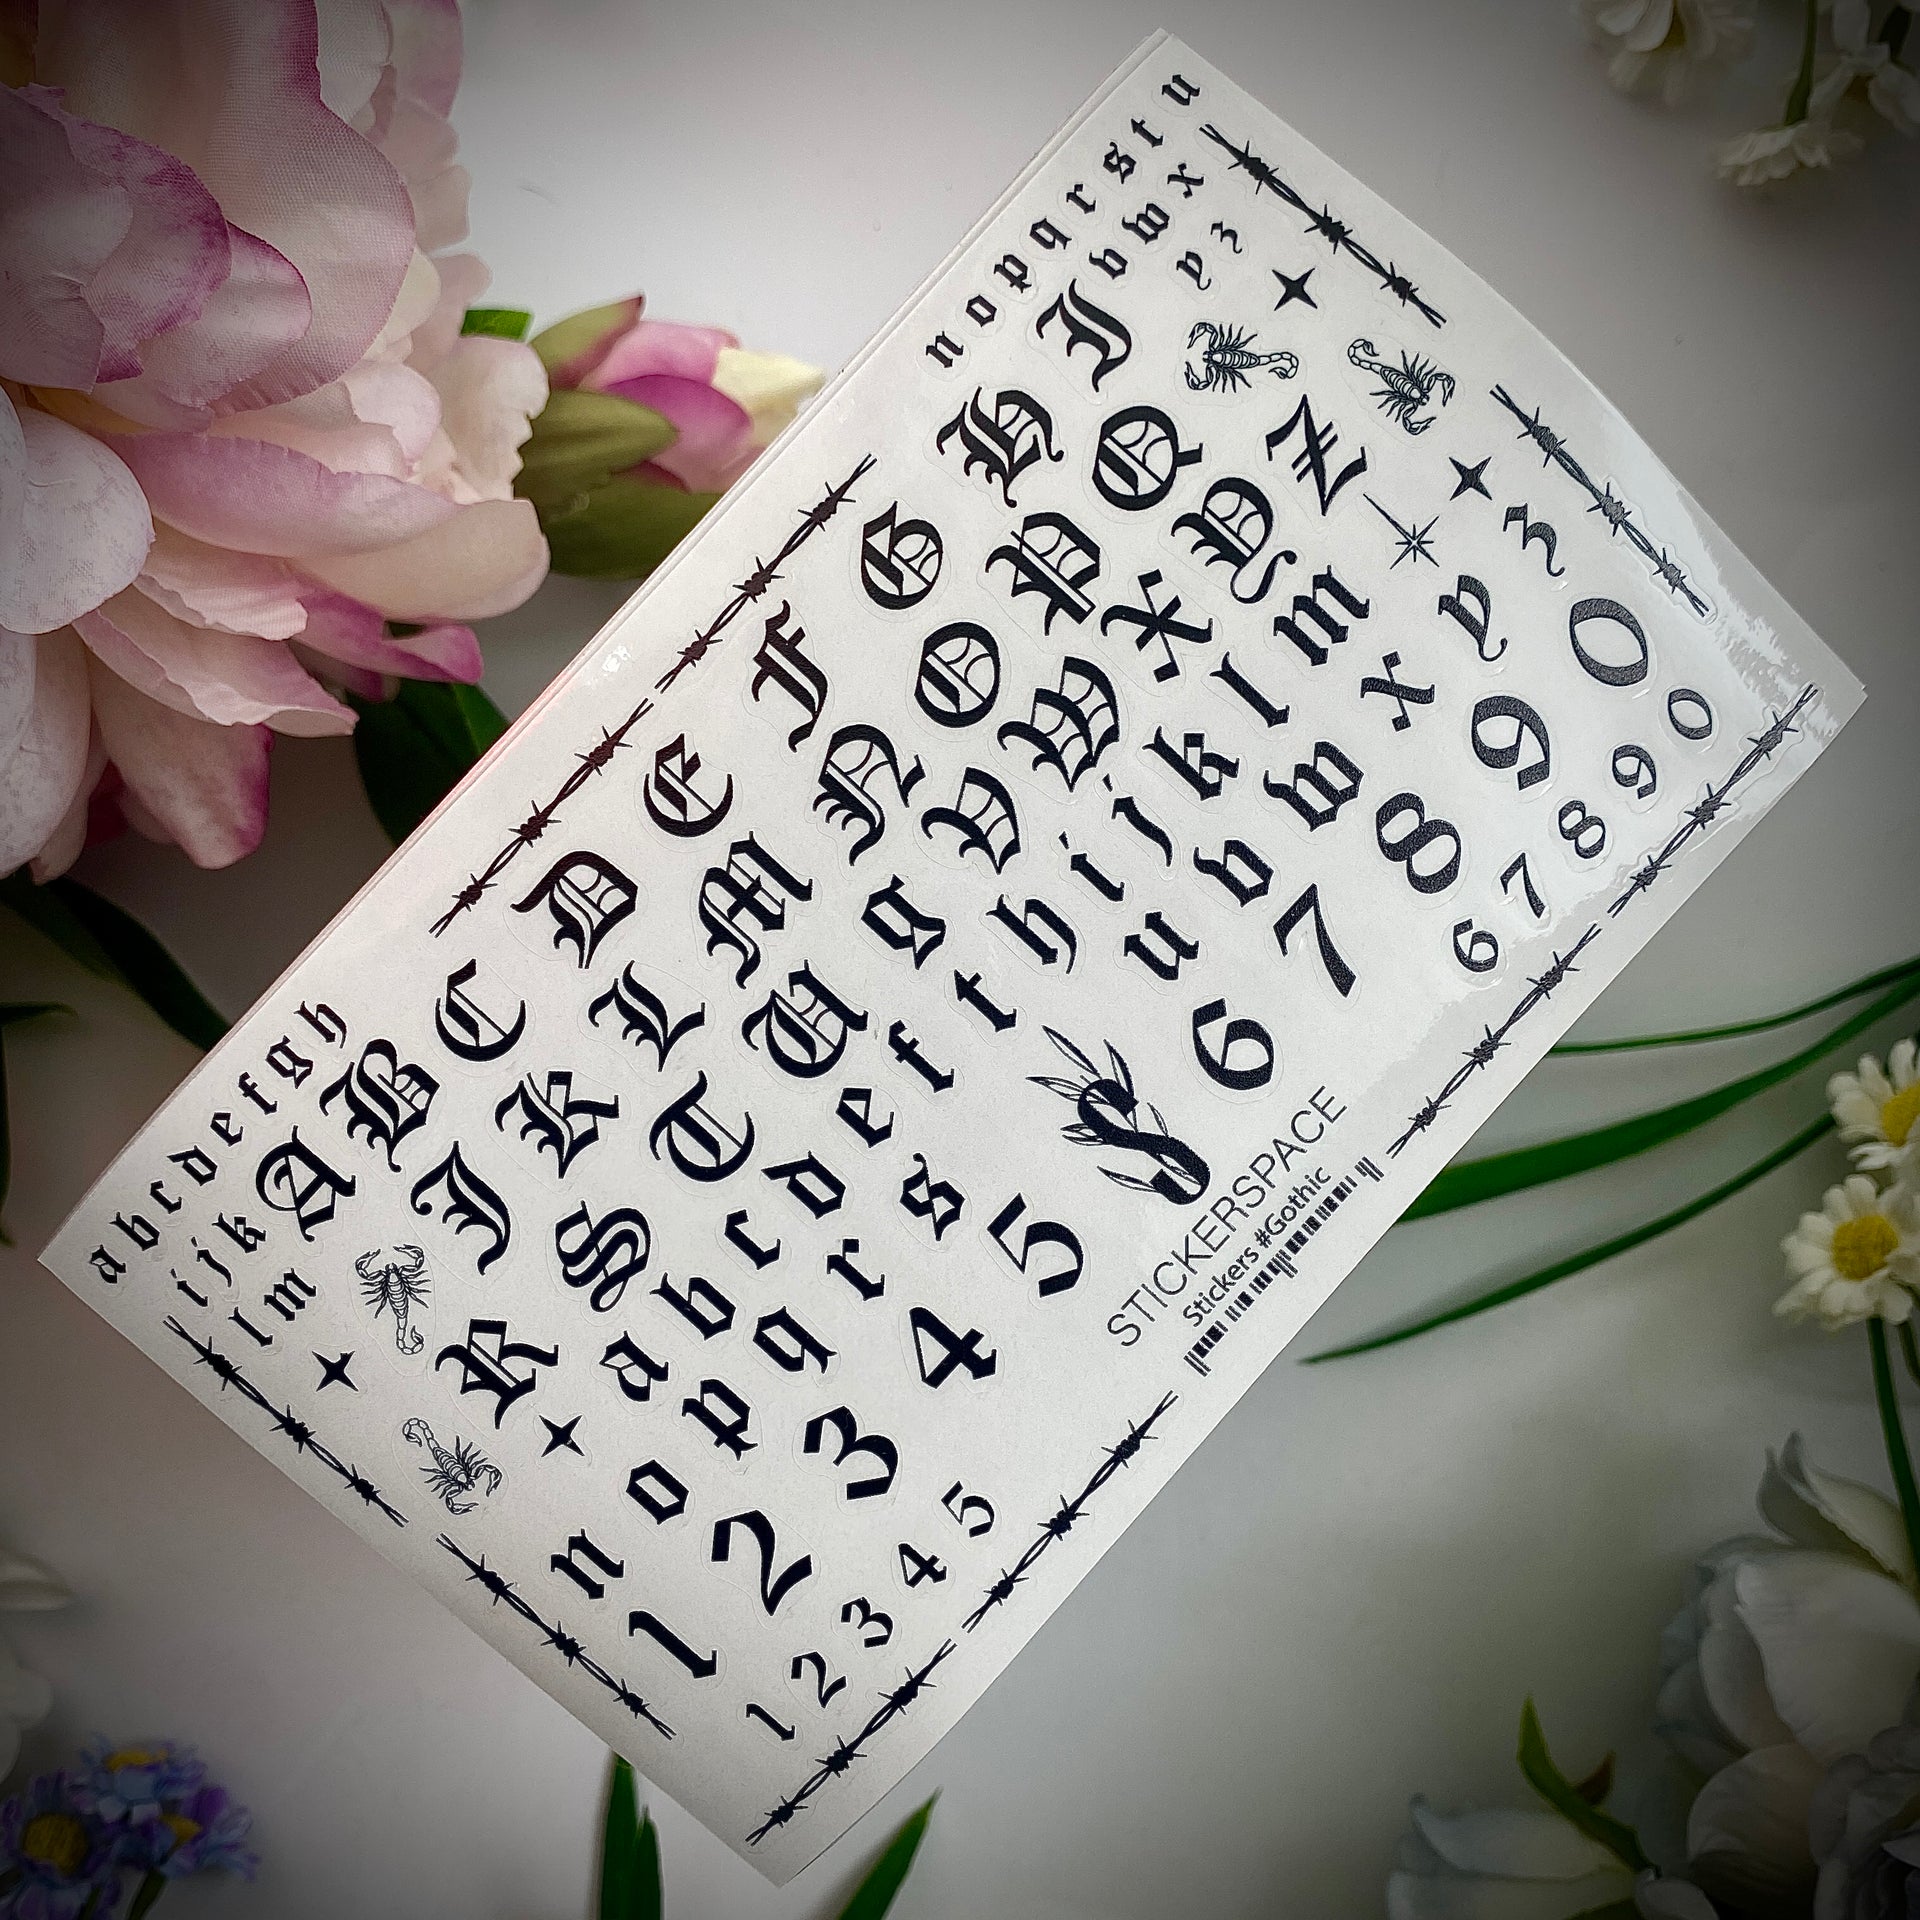 a b c d e f g h
i j k
l m
n o p q r s t u
v w x
y z
A B C D E F G H I
J K L M N O P Q
R S T U V W X Y Z
a b c d e f g h i j k l m
n o p q r s t u v w x y z
1 2 3 4 5 6 7 8 9 0
1 2 3 4 5
S
STICKERSPACE
Stickers #Gothic
6 7 8 9 0